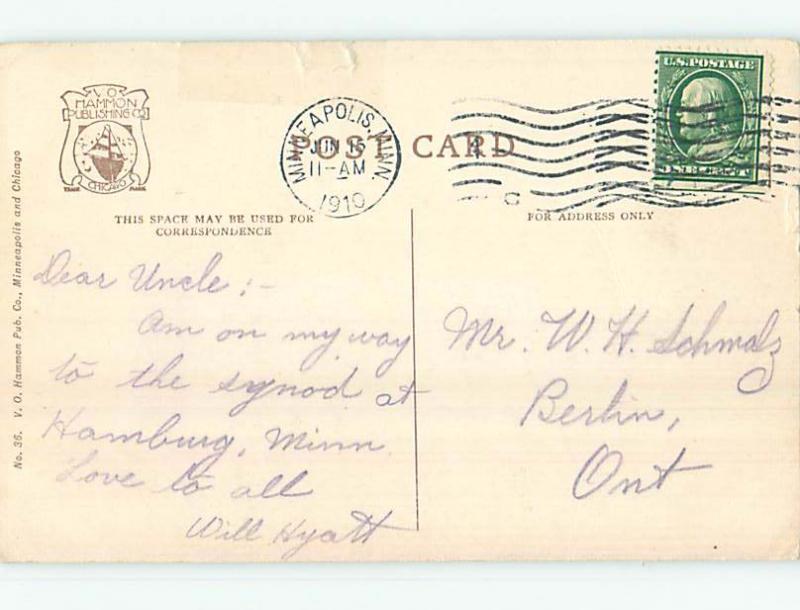 V O
HAMMON
PUBLISHING CO
CHICAGO
TRADE MARK
MINNEAPOLIS, MINN.
JUN 15
11-AM
1910
POST CARD
U.S. POSTAGE
ONE CENT
THIS SPACE MAY BE USED FOR
CORRESPONDENCE
FOR ADDRESS ONLY
No. 36. V. O. Hammon Pub. Co., Minneapolis and Chicago
Dear Uncle :-
Am on my way
to the synod at
Hamburg, Minn.
Love to all
Will Hyatt
Mr. W. H. Schmalz
Berlin,
Ont